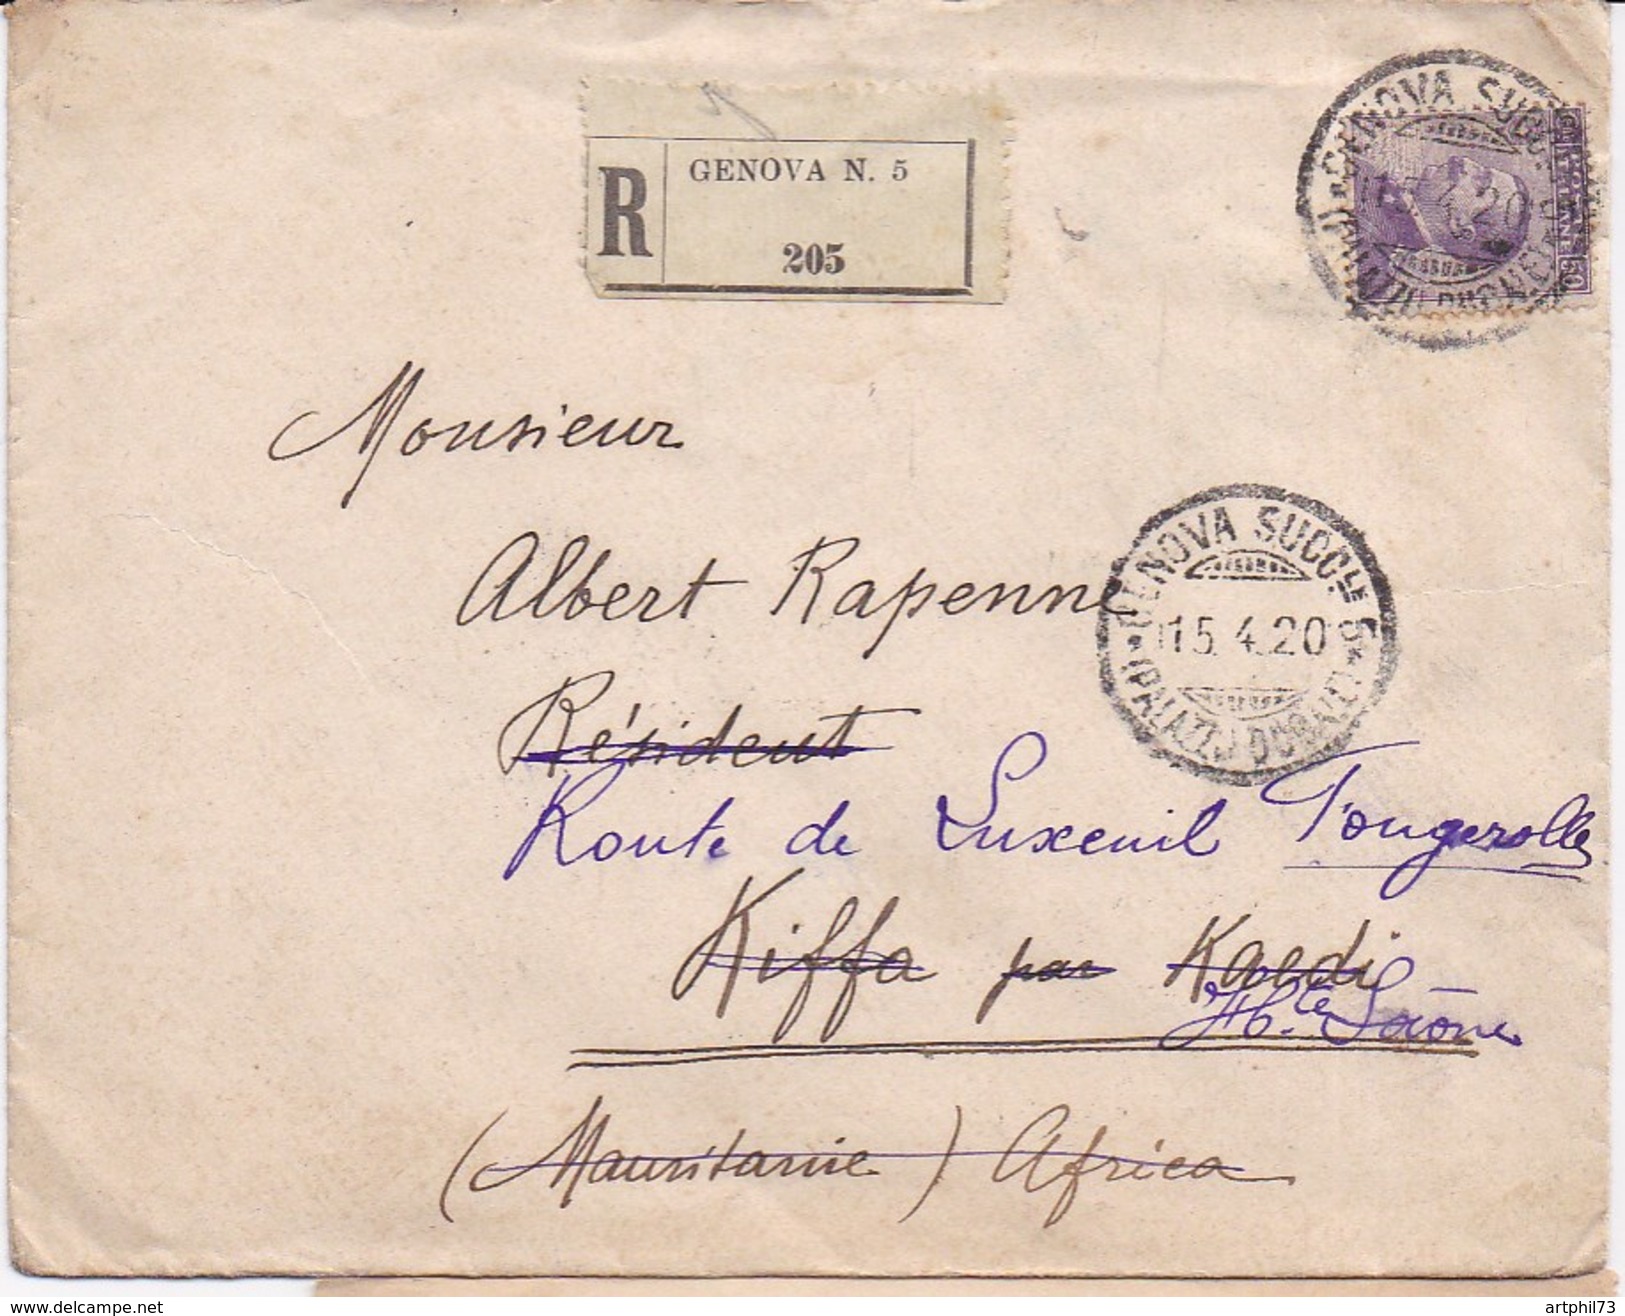 GENOVA N. 5
R
205
GENOVA SUCC
Monsieur
Albert Rapenne
GENOVA SUCC.LE 5
15.4.20
Résident
Route de Luxeuil Fougerolles
Kiffa par Kaedi
Hte. Saône
(Mauritanie) Africa
delcampe.net
artphil73